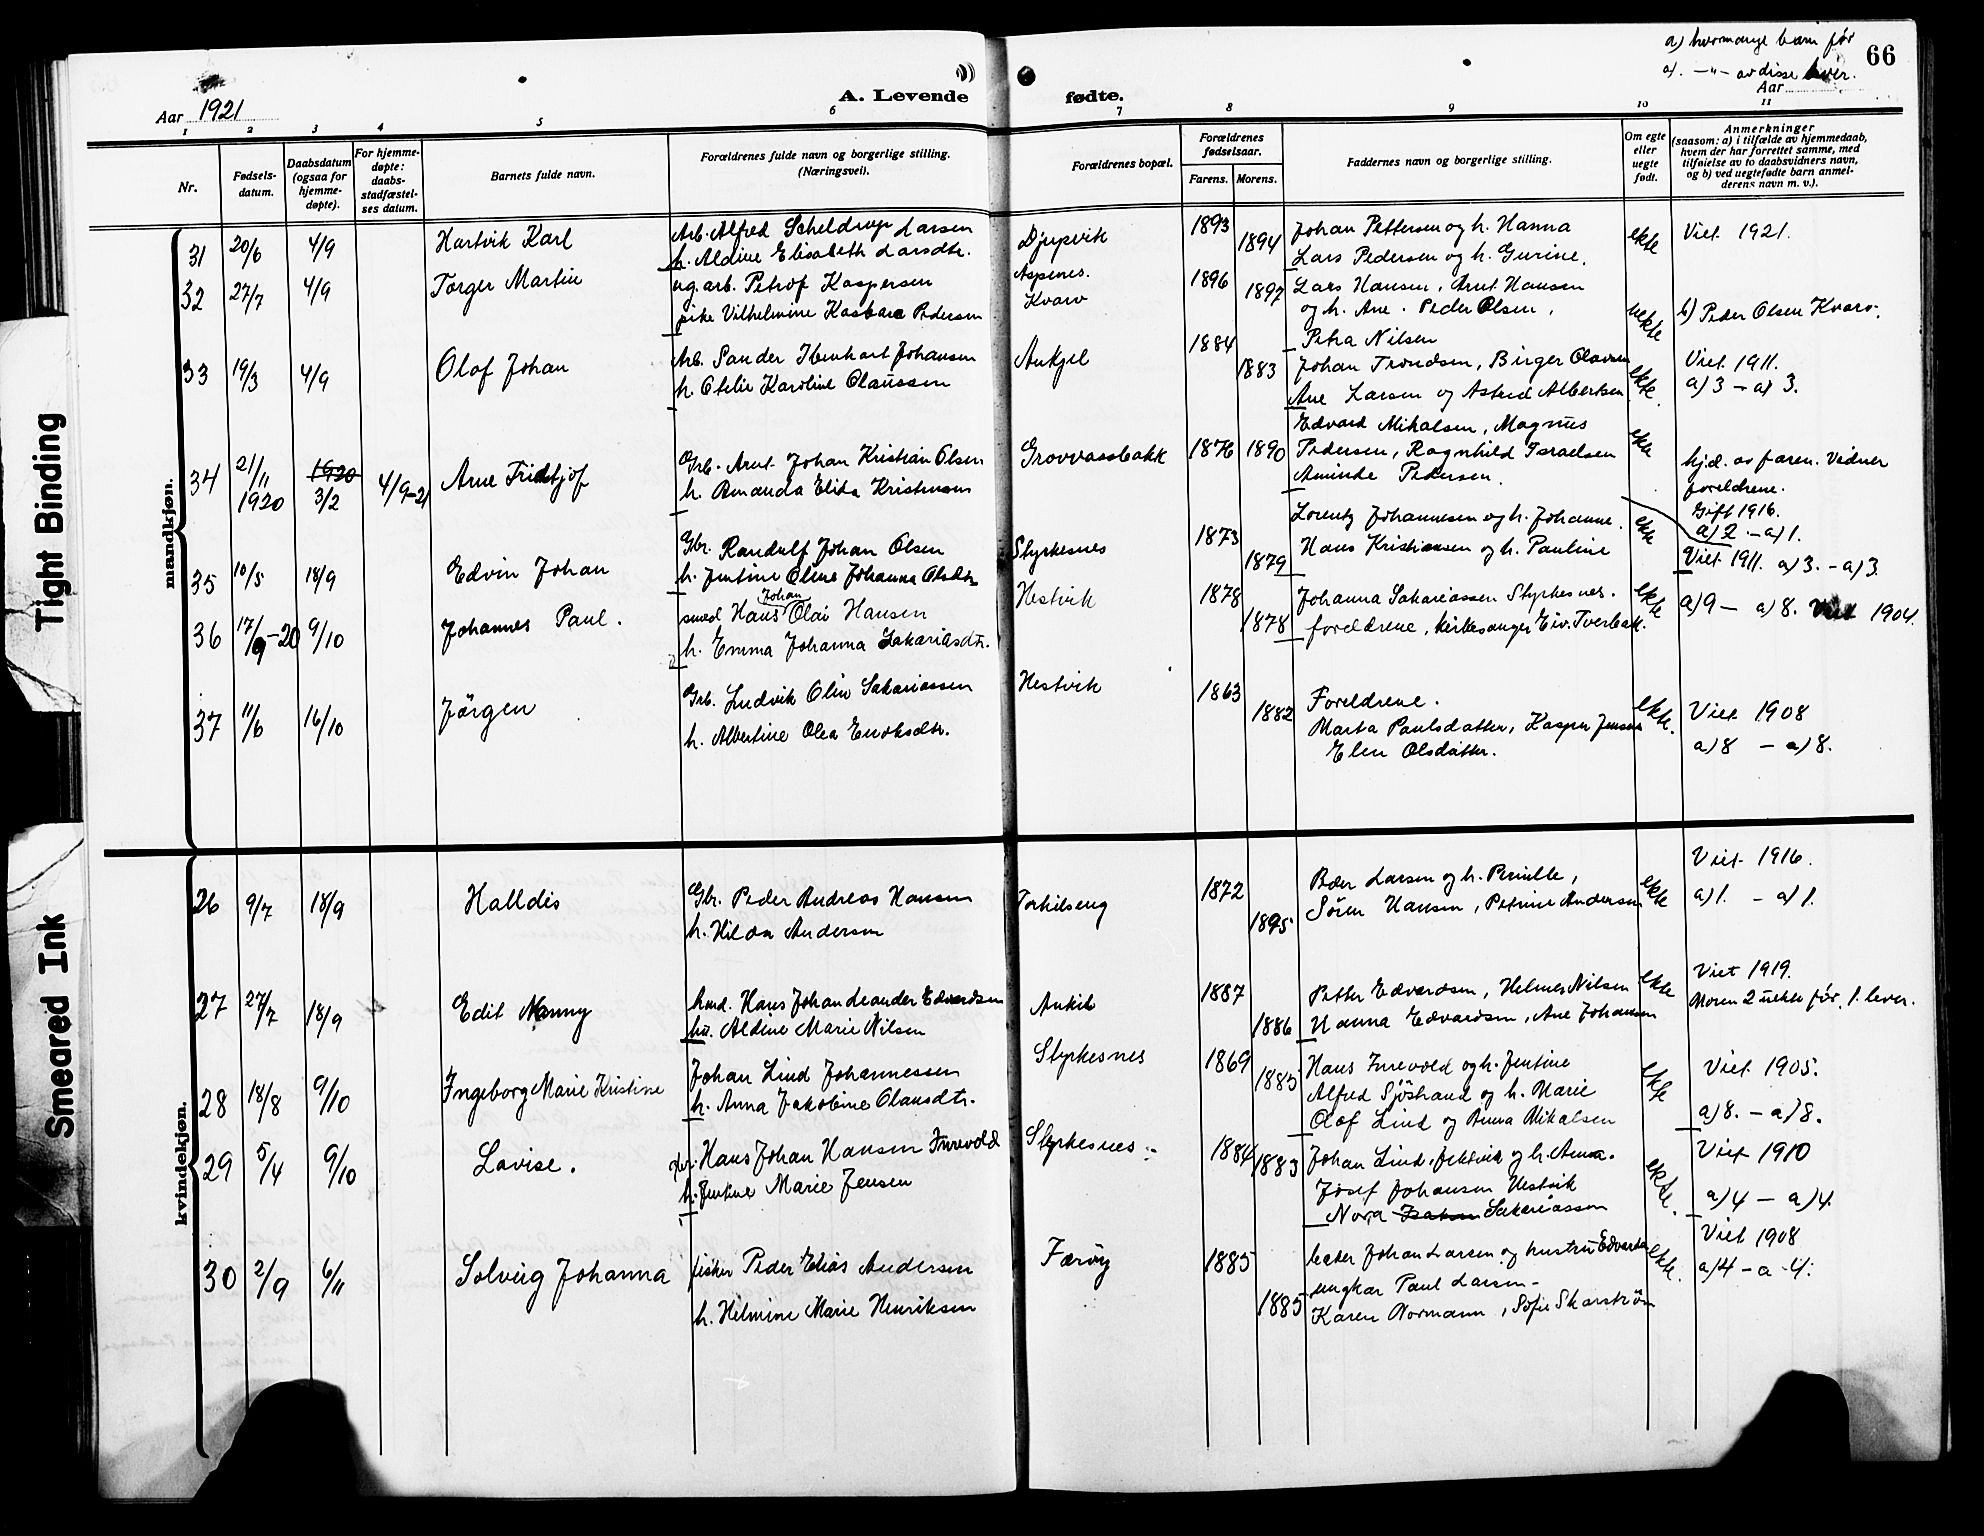 a) hvormange barn før
a). —"— av disse lever.
66
Aar 1921
A. Levende
fødte.
Aar
1 2 3 4 5 6 7 8 9 10 11
Nr.
Fødsels-
datum.
Daabsdatum
(ogsaa for
hjemme-
døpte).
For hjemme-
døpte:
daabs-
stadfæstel-
ses datum.
Barnets fulde navn.
Forældrenes fulde navn og borgerlige stilling.
(Næringsvei).
Forældrenes bopæl.
Forældrenes
fødselsaar.
Farens. Morens.
Faddernes navn og borgerlige stilling.
Om egte
eller
uegte
født.
Anmerkninger
(saasom: a) i tilfælde av hjemmedaab,
hvem der har forrettet samme, med
tilføielse av to daabsvidners navn,
og b) ved uegtefødte barn anmel-
derens navn m. v.).
mandkjøn.
31 20/6 4/9 Hartvik Karl
Arb. Alfred Scheldrup Larsen
h. Aldine Elisabeth Larsdtr.
Djupvik 1893 1894
Johan Pettersen og h. Hanna
Lars Pedersen og h. Gurine.
ekte Viet 1921.
32 27/7 4/9 Torger Martin
ug. arb. Petrof Kaspersen
pike Vilhelmine Kasbara Pedersen
Aspenes.
Kvarv
1896 1897
Lars Hansen, Arnt Hansen
og h. Ane. Peder Olsen,
Petra Nilsen
uekte b) Peder Olsen Kvarv.
33 19/3 4/9 Olaf Johan
Arb. Sander Ibenhart Johansen
h. Otelie Karoline Olaussen
Ankjel 1884 1883
Johan Trondsen, Birger Olavsen
Ane Larsen og Astrid Albertsen
ekte. Viet 1911.
a) 3 – a) 3.
34 21/11 1920 1920 3/2 4/9-21 Arne Fridtjof
Grb. Arnt Johan Kristian Olsen
h. Amanda Elida Kristensen
Grovvassbakk 1876 1890
Edvard Mikalsen, Magnus
Pedersen, Ragnhild Israelsen
Aminde Pedersen.
ekte hjd. av faren. Vidner
foreldrene.
Gift 1916.
a) 2 – a) 1.
35 10/5 18/9 Edvin Johan
Gbr. Randulf Johan Olsen
h. Jentine Oline Johanna Olsdtr.
Styrkesnes 1873 1879
Lorentz Johannesen og h. Johanne.
Hans Kristiansen og h. Pauline
ekte Viet 1911. a) 3. – a) 3.
36 17/9-20 9/10 Johannes Paul.
smed Hans Johan Olai Hansen
h. Emma Johanna Sakariasdtr.
Hestvik 1878 1878
Johanna Sakariassen Styrkesnes.
foreldrene, kirkesanger Eiv. Tverbak.
ekte a) 9 – a) 8. Viet 1904.
37 11/6 16/10 Jørgen
Grb. Ludvik Olin Sakariassen
h. Albertine Olea Enoksdtr.
Hestvik 1863 1882
Foreldrene.
Marta Paulsdatter, Kasper Jensen
Elen Olsdatter.
ekte. Viet 1908
a) 8 – a) 8.
kvindekjøn.
26 9/7 18/9 Halldis
Gbr. Peder Andreas Hansen
h. Hilda Andersen
Torkilseng 1872 1895
Peder Larsen og h. Pernille,
Søren Hansen, Petrine Andersen
ekte Viet 1916.
a) 1. – a) 1.
27 27/7 18/9 Edit Nanny
hmd. Hans Johan Leander Edvardsen
hu. Aldine Marie Nilsen
Ankil 1887 1886
Petter Edvardsen, Helmer Nilsen
Hanna Edvardsen, Ane Johansen
ekte Viet 1919.
Moren 2 uekte før, 1 lever.
28 18/8 9/10 Ingeborg Marie Kristine
Johan Lind Johannessen
h. Anna Jakobine Olausdtr.
Styrkesnes 1869 1885
Hans Furevold og h. Jentine
Alfred Sjöstrand og h. Marie
Olaf Lind og Anna Mikalsen
ekte Viet 1905.
a) 8. – a) 8.
29 5/4 9/10 Lovise.
Hans Johan Hansen Furevold
h. Jentine Marie Jensen
Styrkesnes 1884 1883
Johan Lind, og h. Anna.
Josef Johansen Hestvik
Nora Sakariassen
ekte. Viet 1910
a) 4 – a) 4.
30 2/9 6/11 Solveig Johanna
fisker Peder Elias Andersen
h. Helmine Marie Henriksen
Færøy 1885 1885
Johan Larsen og hustru Edvarda
ungkar Paul Larsen –
Karen Normann, Sofie Skarstrøm
ekte. Viet 1908
a) 4 – a 4.
Tight Binding
Smeared Ink